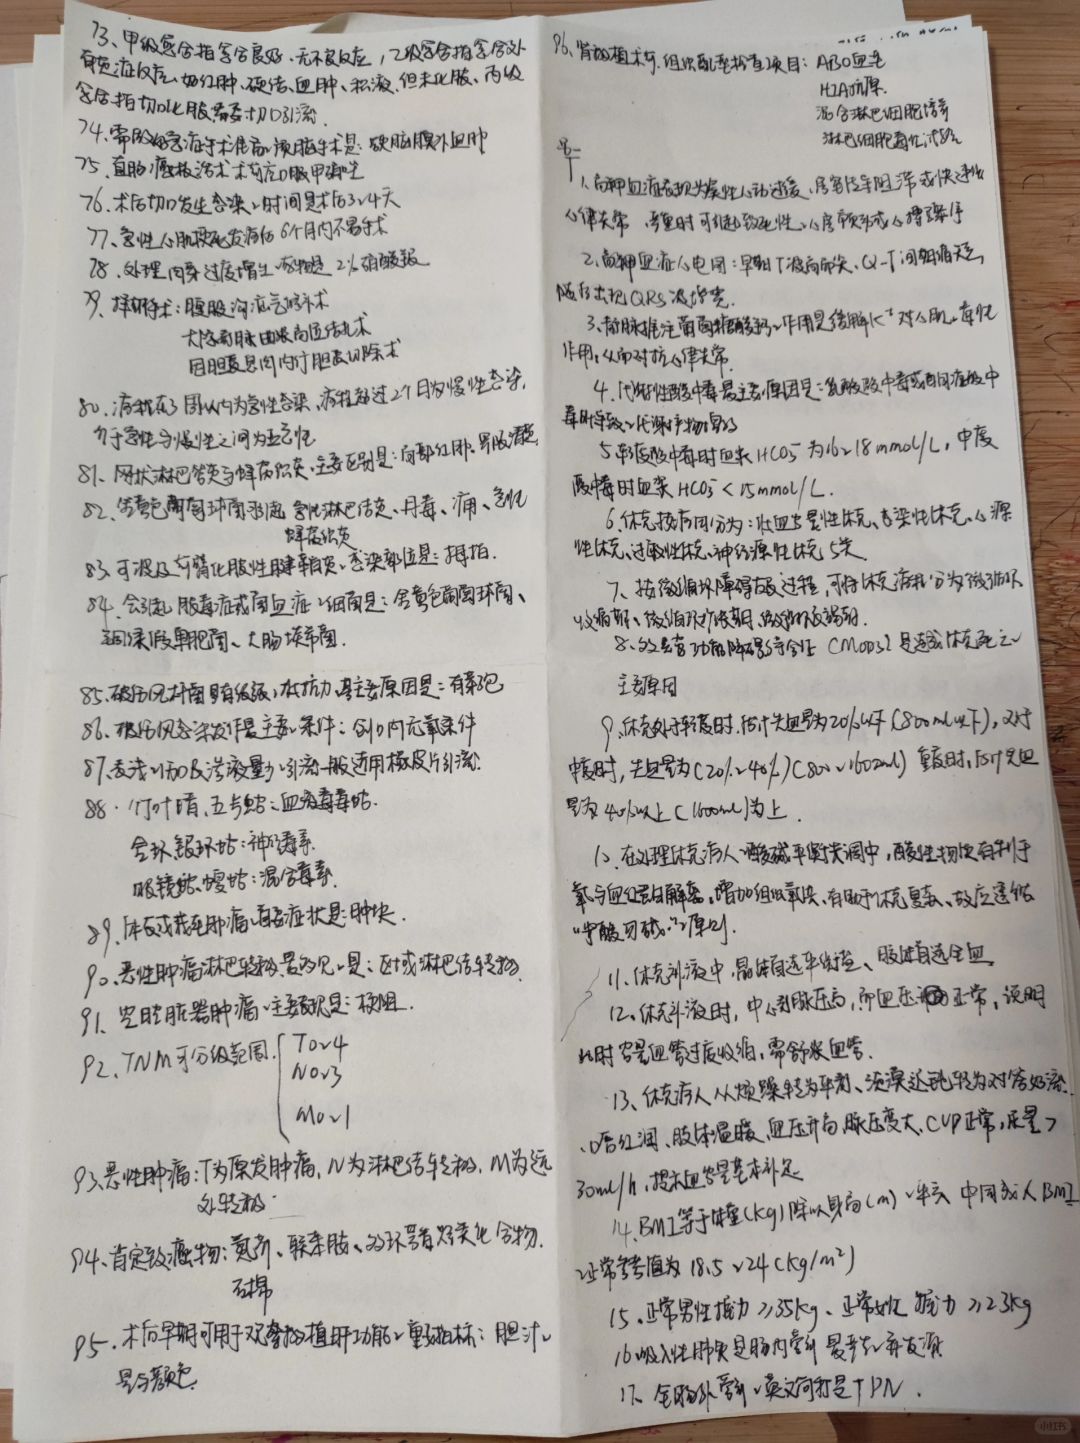 73、甲级愈合指愈合良好、无不良反应，乙级愈合指愈合处
有炎症反应、如红肿、硬结、血肿、积液、但未化脓、丙级
愈合指切口化脓需要切口引流.
74、需做好急症手术准备的颅脑手术是：硬脑膜外血肿
75、直肠癌根治术术前应口服甲硝唑
76、术后切口发生感染时间是术后3~4天
77、急性心肌梗死发病后6个月内不易手术
78、处理肉芽过度增生药物是2%硝酸银
79、择期手术：腹股沟疝气修补术
大隐静脉曲张高位结扎术
因胆囊息肉行胆囊切除术
80、病程在3周以内为急性感染，病程超过2个月为慢性感染，
介于急性与慢性之间为亚急性
81、网状淋巴管炎与蜂窝织炎主要区别是：局部红肿、界限清楚
82、金黄色葡萄球菌引起急性淋巴结炎、丹毒、痈、急性
蜂窝织炎
83、可波及前臂化脓性腱鞘炎、感染部位是：拇指.
84、会引起脓毒症或菌血症细菌是：金黄色葡萄球菌、
铜绿假单胞菌、大肠埃希菌.
85、破伤风杆菌具有较强抵抗力，其主要原因是：有芽孢
86、破伤风感染发作最主要条件：伤口内无氧条件
87、表浅切口及渗液量少引流一般选用橡皮片引流.
88、竹叶青、五步蛇：血液毒毒蛇.
金环银环蛇：神经毒素.
眼镜蛇、蝮蛇：混合毒素.
89、体表或浅在肿瘤首要症状是：肿块.
90、恶性肿瘤淋巴转移最多见是：区域淋巴结转移.
91、空腔脏器肿瘤主要表现是：梗阻.
92、TNM可分级范围 T0~4
N0~3
M0~1
93、恶性肿瘤：T为原发肿瘤，N为淋巴结转移，M为远
处转移.
94、肯定致癌物：氮芥、联苯胺、多环芳香烃类化合物.
石棉
95、术后早期可用于观察移植肝功能重要指标：胆汁
量与颜色
96、肾移植术前组织配型检查项目：ABO血型
HLA抗原.
混合淋巴细胞培养
淋巴细胞毒性试验
1、高钾血症表现为窦性心动过缓、房室传导阻滞或快速性
心律失常，严重时可引起致死性心室颤动或心搏骤停
2、高钾血症心电图：早期T波高而尖、Q-T间期缩短，
随后出现QRS波增宽.
3、静脉推注葡萄糖酸钙作用是缓解K⁺对心肌毒性
作用，从而对抗心律失常.
4、代谢性酸中毒最主要原因是：乳酸酸中毒或酮症酸中
毒时导致
5、轻度酸中毒时血浆HCO₃⁻为16~18mmol/L，中度
酸中毒时血浆HCO₃⁻<15mmol/L.
6、休克按病因分为：低血容量性休克、感染性休克、心源
性休克、过敏性休克、神经源性休克5类
7、按微循环障碍发展过程，可将休克病程分为微循环
收缩期、微循环扩张期、微循环衰竭期.
8、多器官功能障碍综合征（MODS）是造成休克死亡
主要原因
9、休克处于轻度时，估计失血量为20%以下（800ml以下），对
中度时，失血量为（20%~40%）（800~1600ml）重度时，估计失血
量为40%以上（1600ml）为上.
10、在处理休克病人酸碱平衡失调中，酸性物质有利于
氧与血红蛋白解离，增加组织氧供，有助于休克复苏、故应遵循
"宁酸勿碱"原则.
11、休克补液中，晶体首选平衡盐、胶体首选全血
12、休克补液时，中心静脉压高，而血压正常，说明
此时容量血管过度收缩，需舒张血管.
13、休克病人从烦躁转为平静、淡漠迟钝转为对答如流.
口唇红润、肢体温暖、血压升高、脉压变大、CVP正常，尿量>
30ml/h，提示血容量基本补足
14、BMI等于体重（kg）除以身高（m）平方 中国成人BMI
正常参考值为18.5~24（kg/m²）
15、正常男性握力≥35kg、正常女性握力≥23kg
16、吸入性肺炎是肠内营养最严重并发症
17、全肠外营养英文简称是TPN.